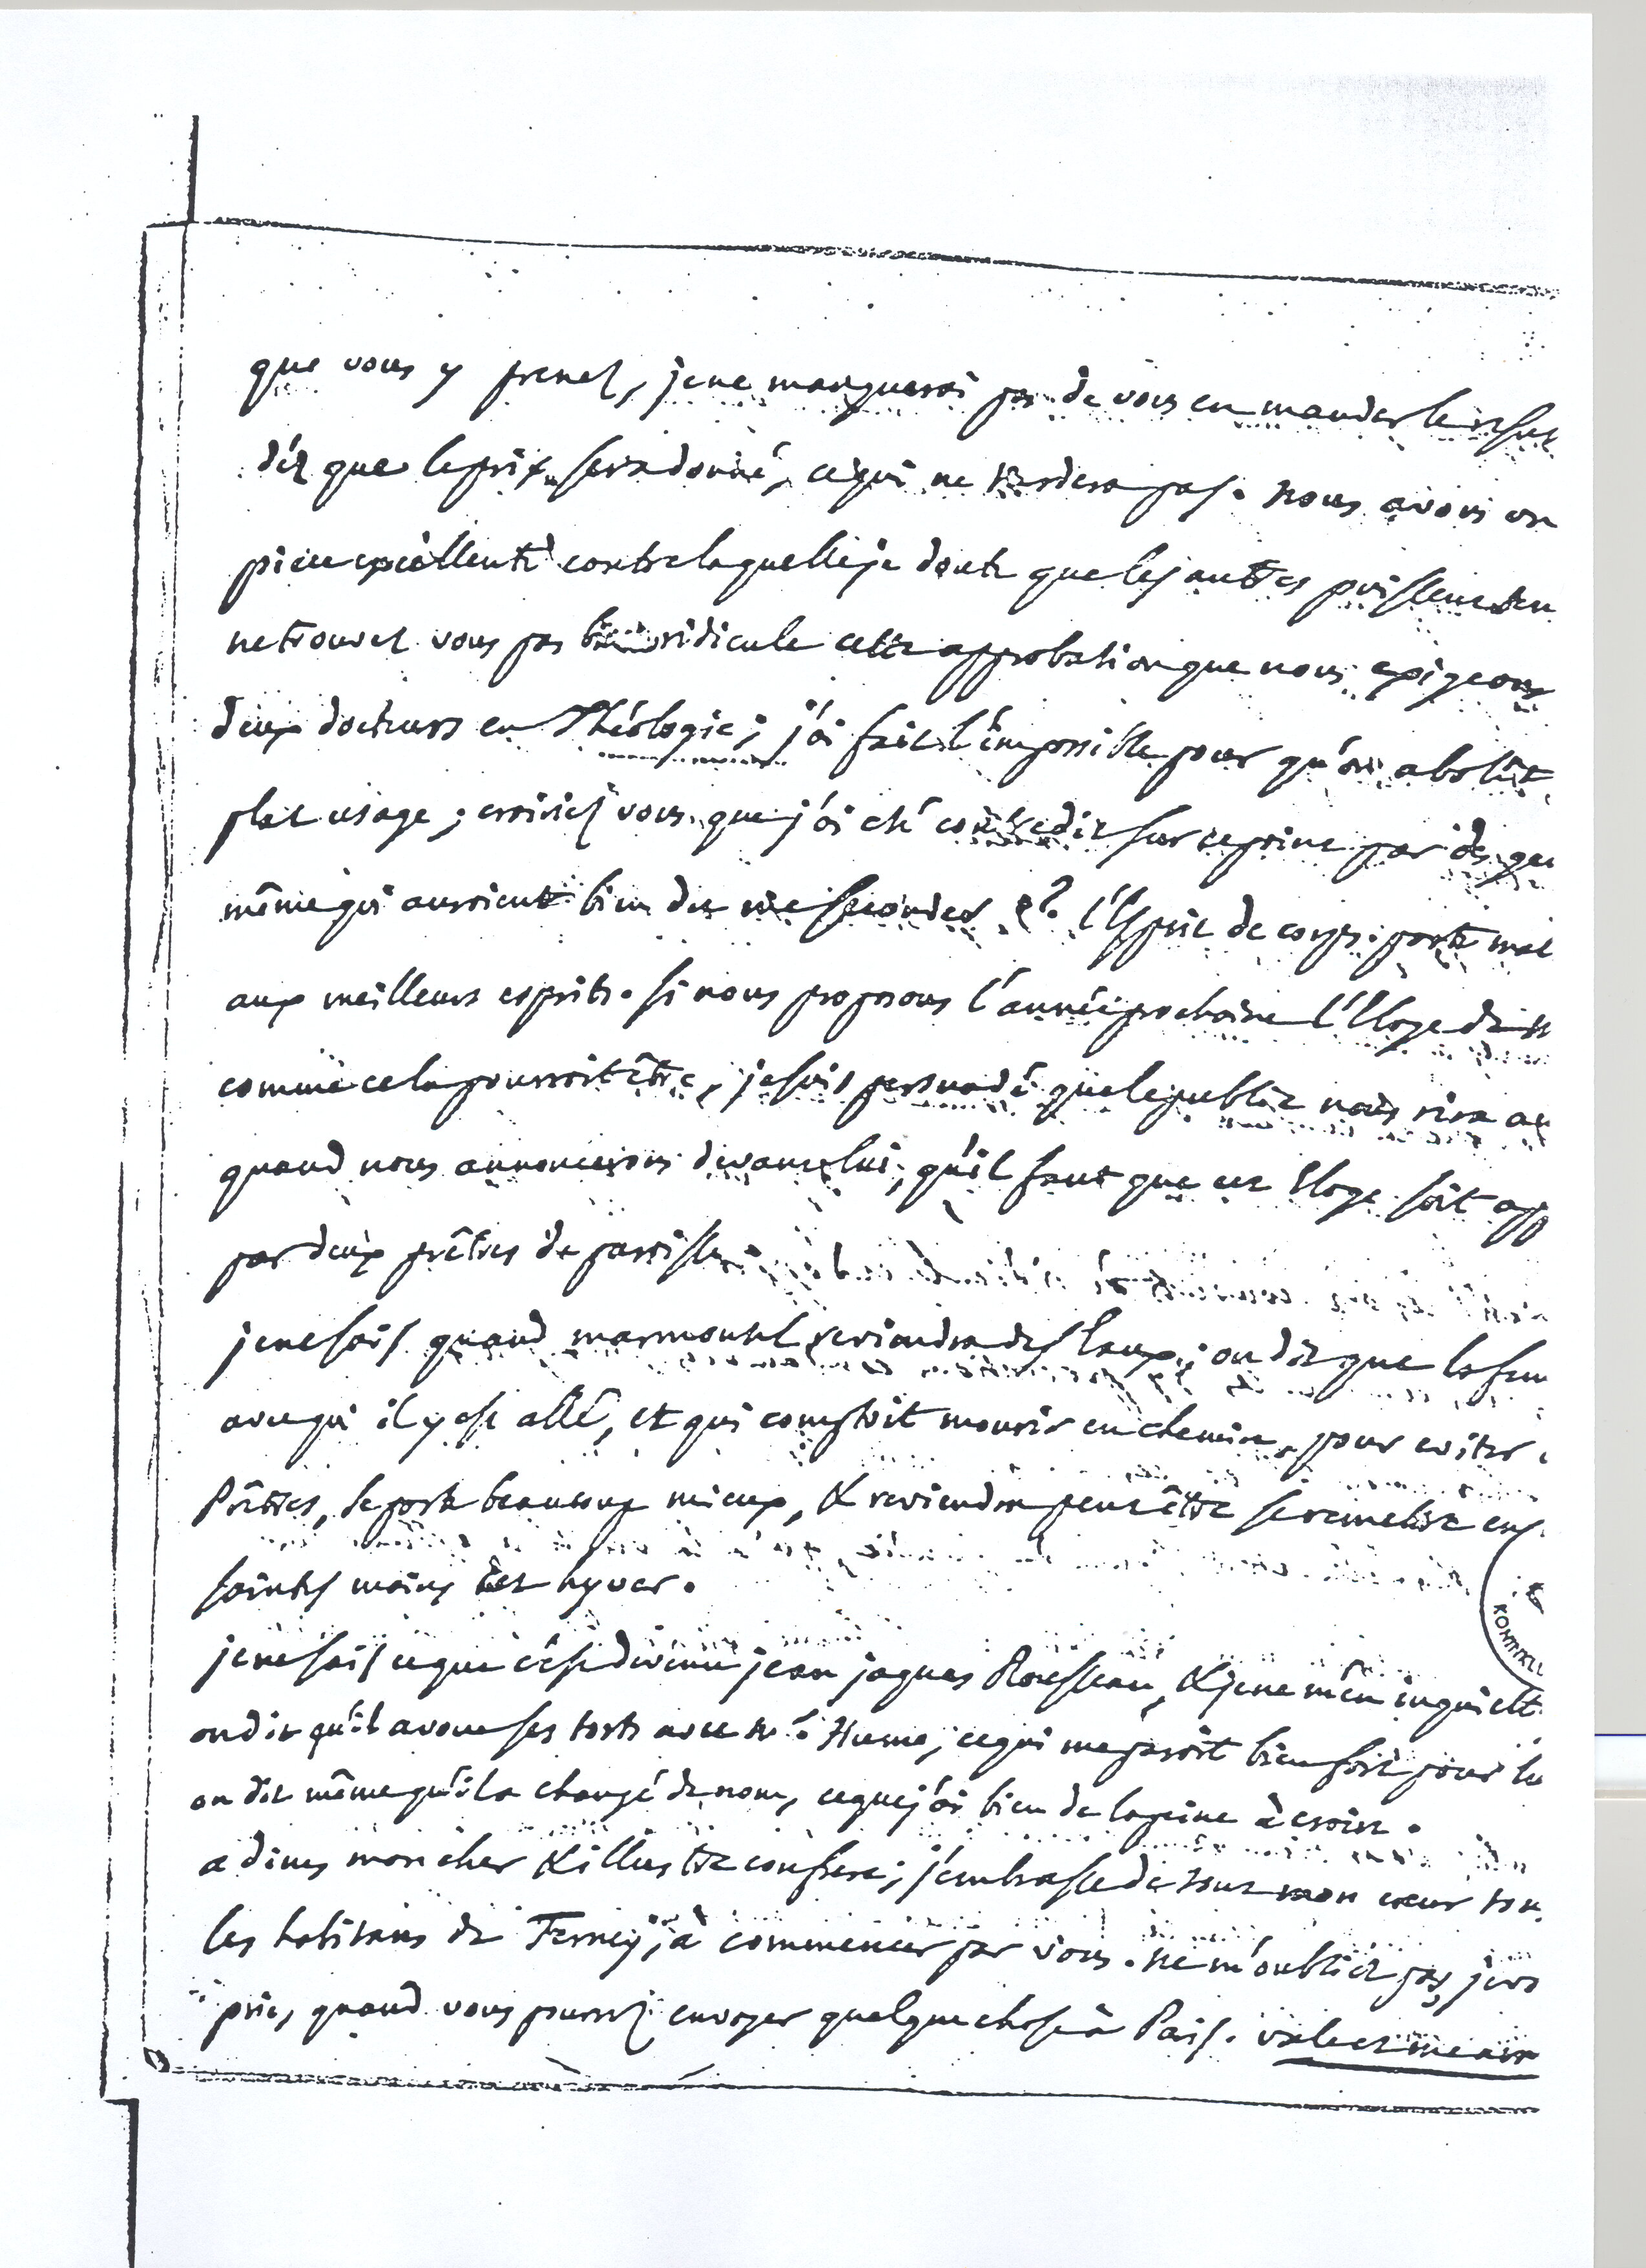 que vous y prenez, je ne manquerai pas de vous en mander le resul
dès que le prix sera donné, ce qui ne tardera pas. nous avons un
piece excellente contre laquelle je doute que les autres puissent ten
ne trouvez vous pas bien ridicule cette approbation que nous exigeons
deux docteurs en Théologie; j'ai fait l'impossible pour qu'on abolît
plat usage; croiriez vous que j'ai été contredit sur ce point par des gen
même qui auroient bien du me seconder? l'Esprit de corps porte mal
aux meilleurs esprits. si nous proposons l'année prochaine l'Eloge de M
comme cela pourroit être, je suis persuadé que le public nous rira au
quand nous annoncerons devant lui, qu'il faut que cet Eloge soit app
par deux prêtres de paroisse.
je ne sais quand marmontel reviendra des Eaux; on dit que la fem
avec qui il y est allé, et qui comptoit mourir en chemin, pour eviter
Prêtres, se porte beaucoup mieux, & reviendra peut être se remettre en
saintes mains cet hyver.
je ne sais ce que c'est devenu jean jaques Rousseau, & je ne m'en inquiette
on dit qu'il avoue ses torts avec Mr. Hume; ce qui me paroit bien fort pour lu
on dit même qu'il a changé de nom, ce que j'ai bien de la peine à croire.
adieu mon cher & illustre confrere; j'embrasse de tout mon coeur tou
les habitans de Ferney, à commencer par vous. ne m'oubliez pas, je vo
prie, quand vous pourrez envoyer quelque chose à Paris. vale et me am